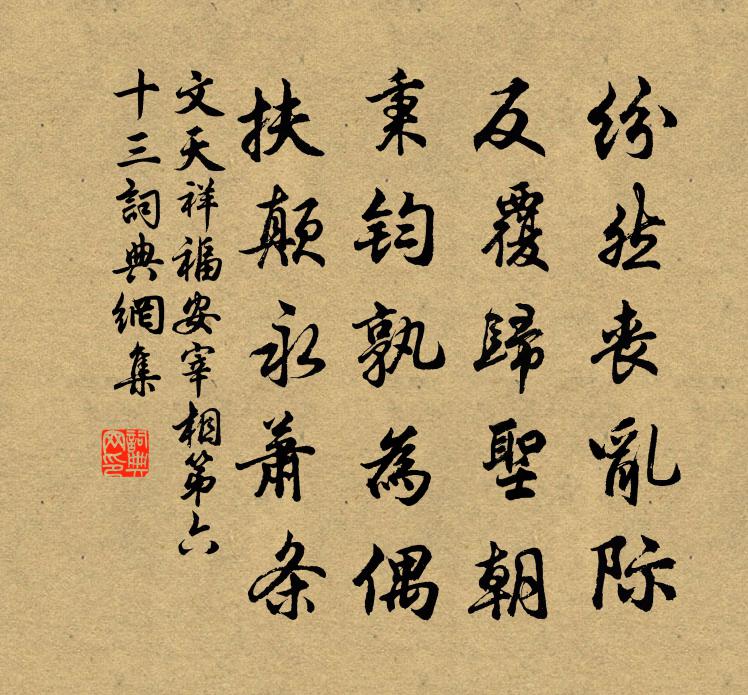 纷然丧乱际
反覆歸聖朝
秉钧孰為偶
扶颠永萧条
文天祥福安宰相第六
十三詞典網集
詞典
网印